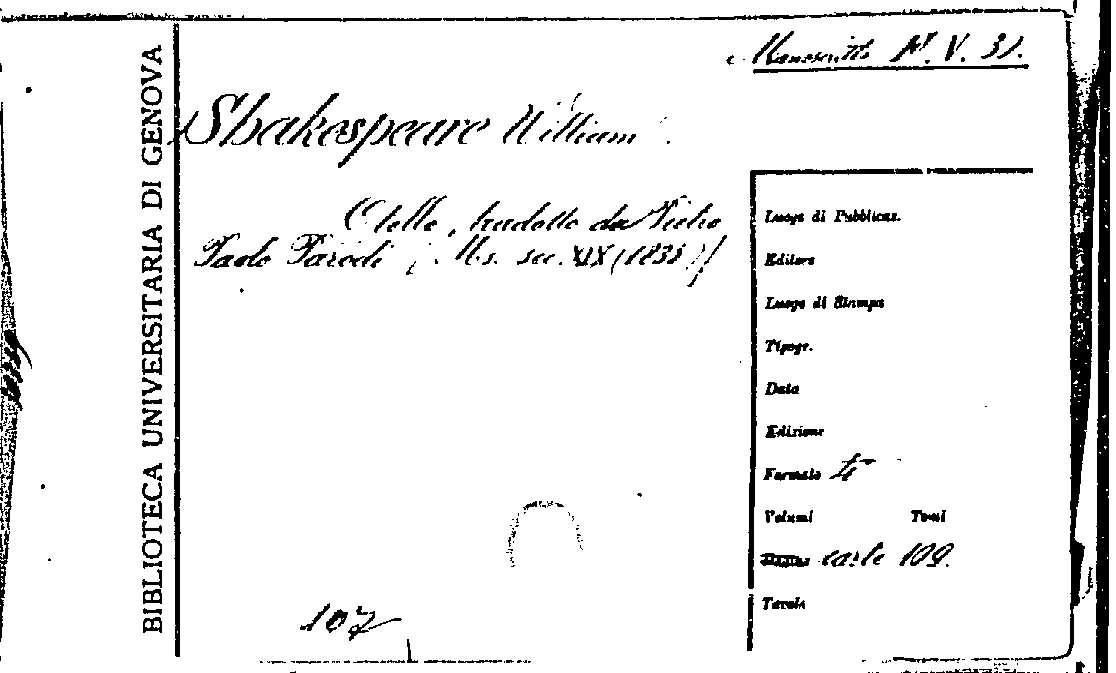 BIBLIOTECA UNIVERSITARIA DI GENOVA
Manoscritto N. V. 31.
Shakespeare William
Otello, tradotto da Pietro
Paolo Parodi; Ms. sec. XIX (1835)
Luogo di Pubblicaz.
Editore
Luogo di Stampa
Tipogr.
Data
Edizione
Formato 4°
Volumi Tomi
carte 109.
Tavole
107